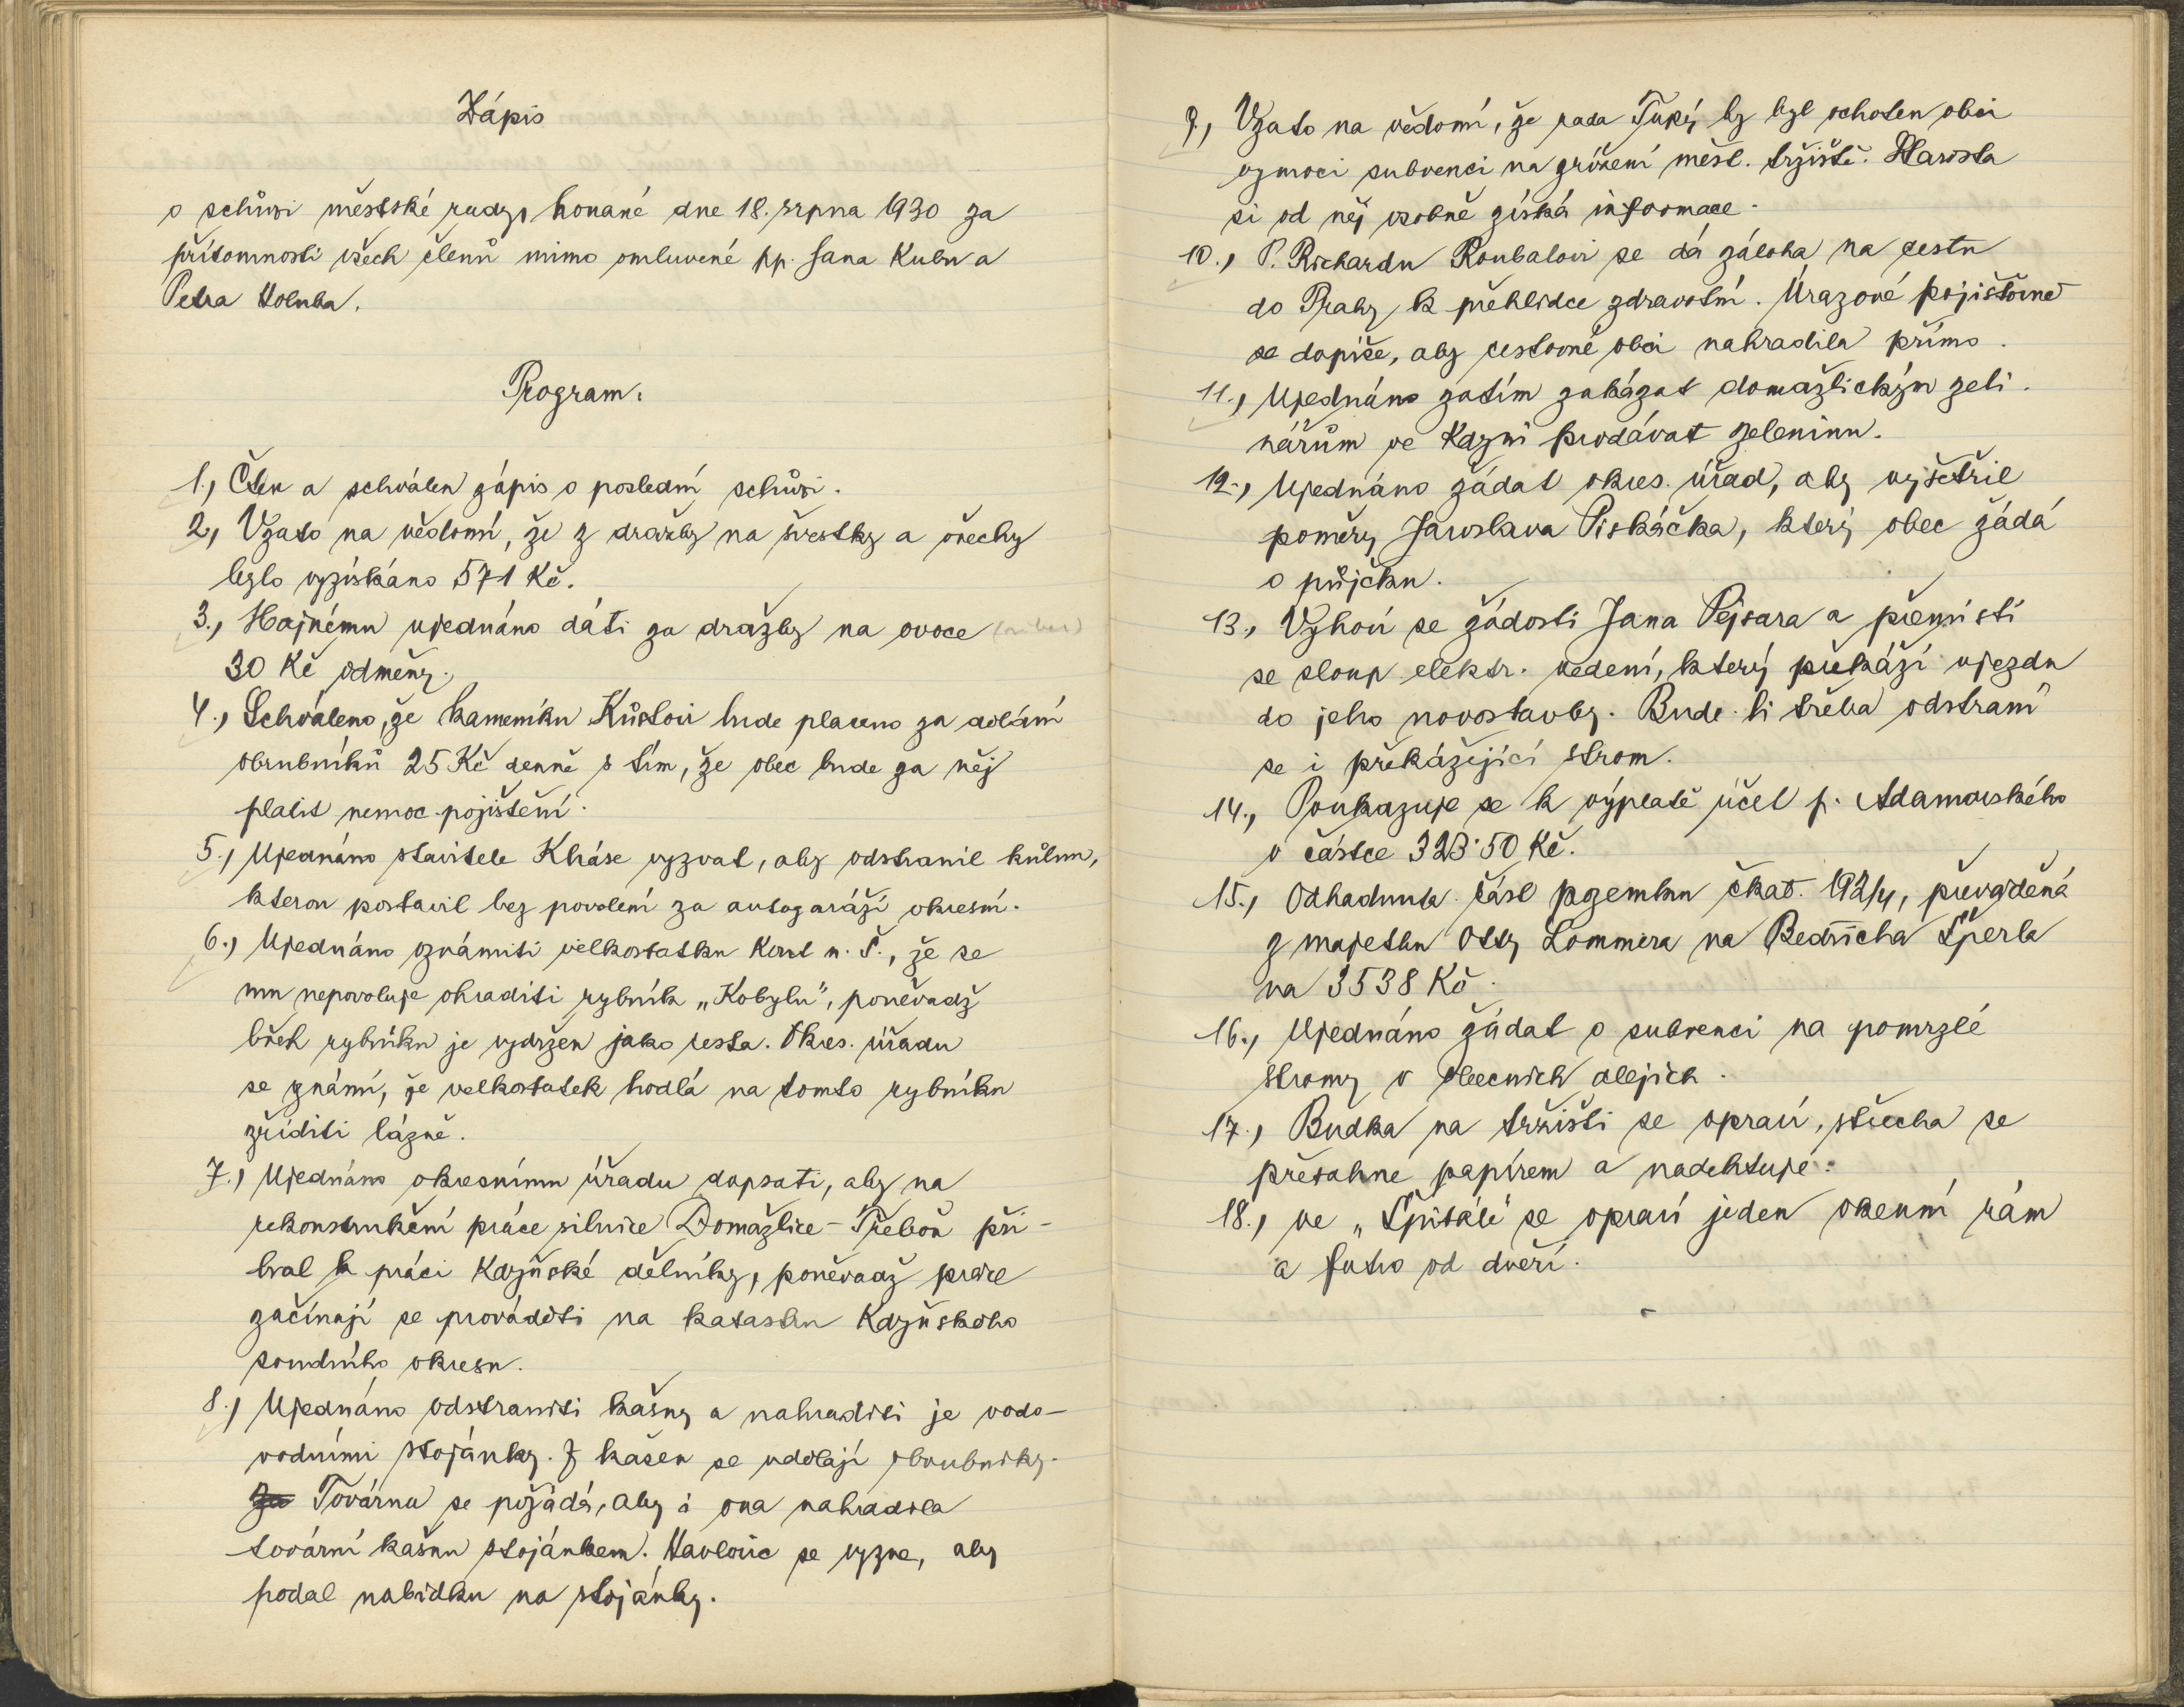 Zápis
o schůzi městské rady, konané dne 18. srpna 1930 za
přítomnosti všech členů mimo omluvené pp. Jana Kubu a
Petra Holuba.
Program:
1., Čten a schválen zápis o poslední schůzi.
2., Vzato na vědomí, že z dražby na švestky a ořechy
bylo vyzískáno 571 Kč.
3., Hajnému ujednáno dáti za dražby na ovoce
30 Kč odměny.
4., Schváleno, že kameníku Kůstovi bude placeno za dělání
obrubníků 25 Kč denně s tím, že obec bude za něj
platit nemoc. pojištění.
5., Ujednáno stavitele Kháse vyzvat, aby odstranil kůlnu,
kterou postavil bez povolení za autogaráží okresní.
6., Ujednáno oznámiti velkostatku Kout n. Š., že se
mu nepovoluje ohraditi rybník „Kobylu", poněvadž
břeh rybníku je vydržen jako cesta. Okres. úřadu
se známí, že velkostatek hodlá na tomto rybníku
zříditi lázně.
7.) Ujednáno okresnímu úřadu dopsati, aby na
rekonstrukční práce silnice Domažlice - Třeboň při-
bral k práci Kdyňské dělníky, poněvadž práce
začínají se prováděti na katastru Kdyňského
soudního okresu.
8.) Ujednáno odstraniti kašny a nahraditi je vodo-
vodními stojánky. Z kašen se udělají obrubníky.
Za Továrna se požádá, aby i ona nahradila
tovární kašnu stojánkem. Havlovic se vyzve, aby
podal nabídku na stojánky.
9., Vzato na vědomí, že rada Tupý by byl ochoten obci
vymoci subvenci na zřízení měst. tržiště. Starosta
si od něj osobně získá informace.
10., P. Richardu Roubalovi se dá záloha na cestu
do Prahy k přehlídce zdravotní. Úrazové pojišťovně
se dopíše, aby cestovné obci nahradila přímo.
11., Ujednáno zatím zakázat domažlickým zeli-
nářům ve Kdyni prodávat zeleninu.
12., Ujednáno žádat okres. úřad, aby vyšetřil
poměry Jaroslava Piskáčka, který obec žádá
o půjčku.
13., Vyhoví se žádosti Jana Pejsara a přemístí
se sloup elektr. vedení, který překáží vjezdu
do jeho novostavby. Bude-li třeba odstraní
se i překážející strom.
14., Poukazuje se k výplatě účet p. Adamovského
v částce 323·50 Kč.
15., Odhadnuta část pozemku čkat. 192/4, převáděná
z majetku Otty Lommera na Bedřicha Šperla
na 3538 Kč.
16., Ujednáno žádat o subvenci na pomrzlé
stromy v obecních alejích.
17., Budka na tržišti se opraví, střecha se
přetáhne papírem a nadehtuje.
18., ve „Špitále" se opraví jeden okenní rám
a futro od dveří.